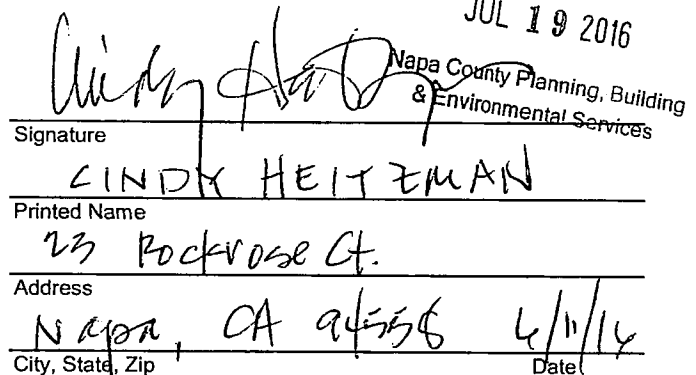 JUL 19 2016
Napa County Planning, Building
& Environmental Services
Cindy Heitzman
Signature
CINDY HEITZMAN
Printed Name
23 Rockrose Ct.
Address
Napa, CA 94558 6/11/16
City, State, Zip Date